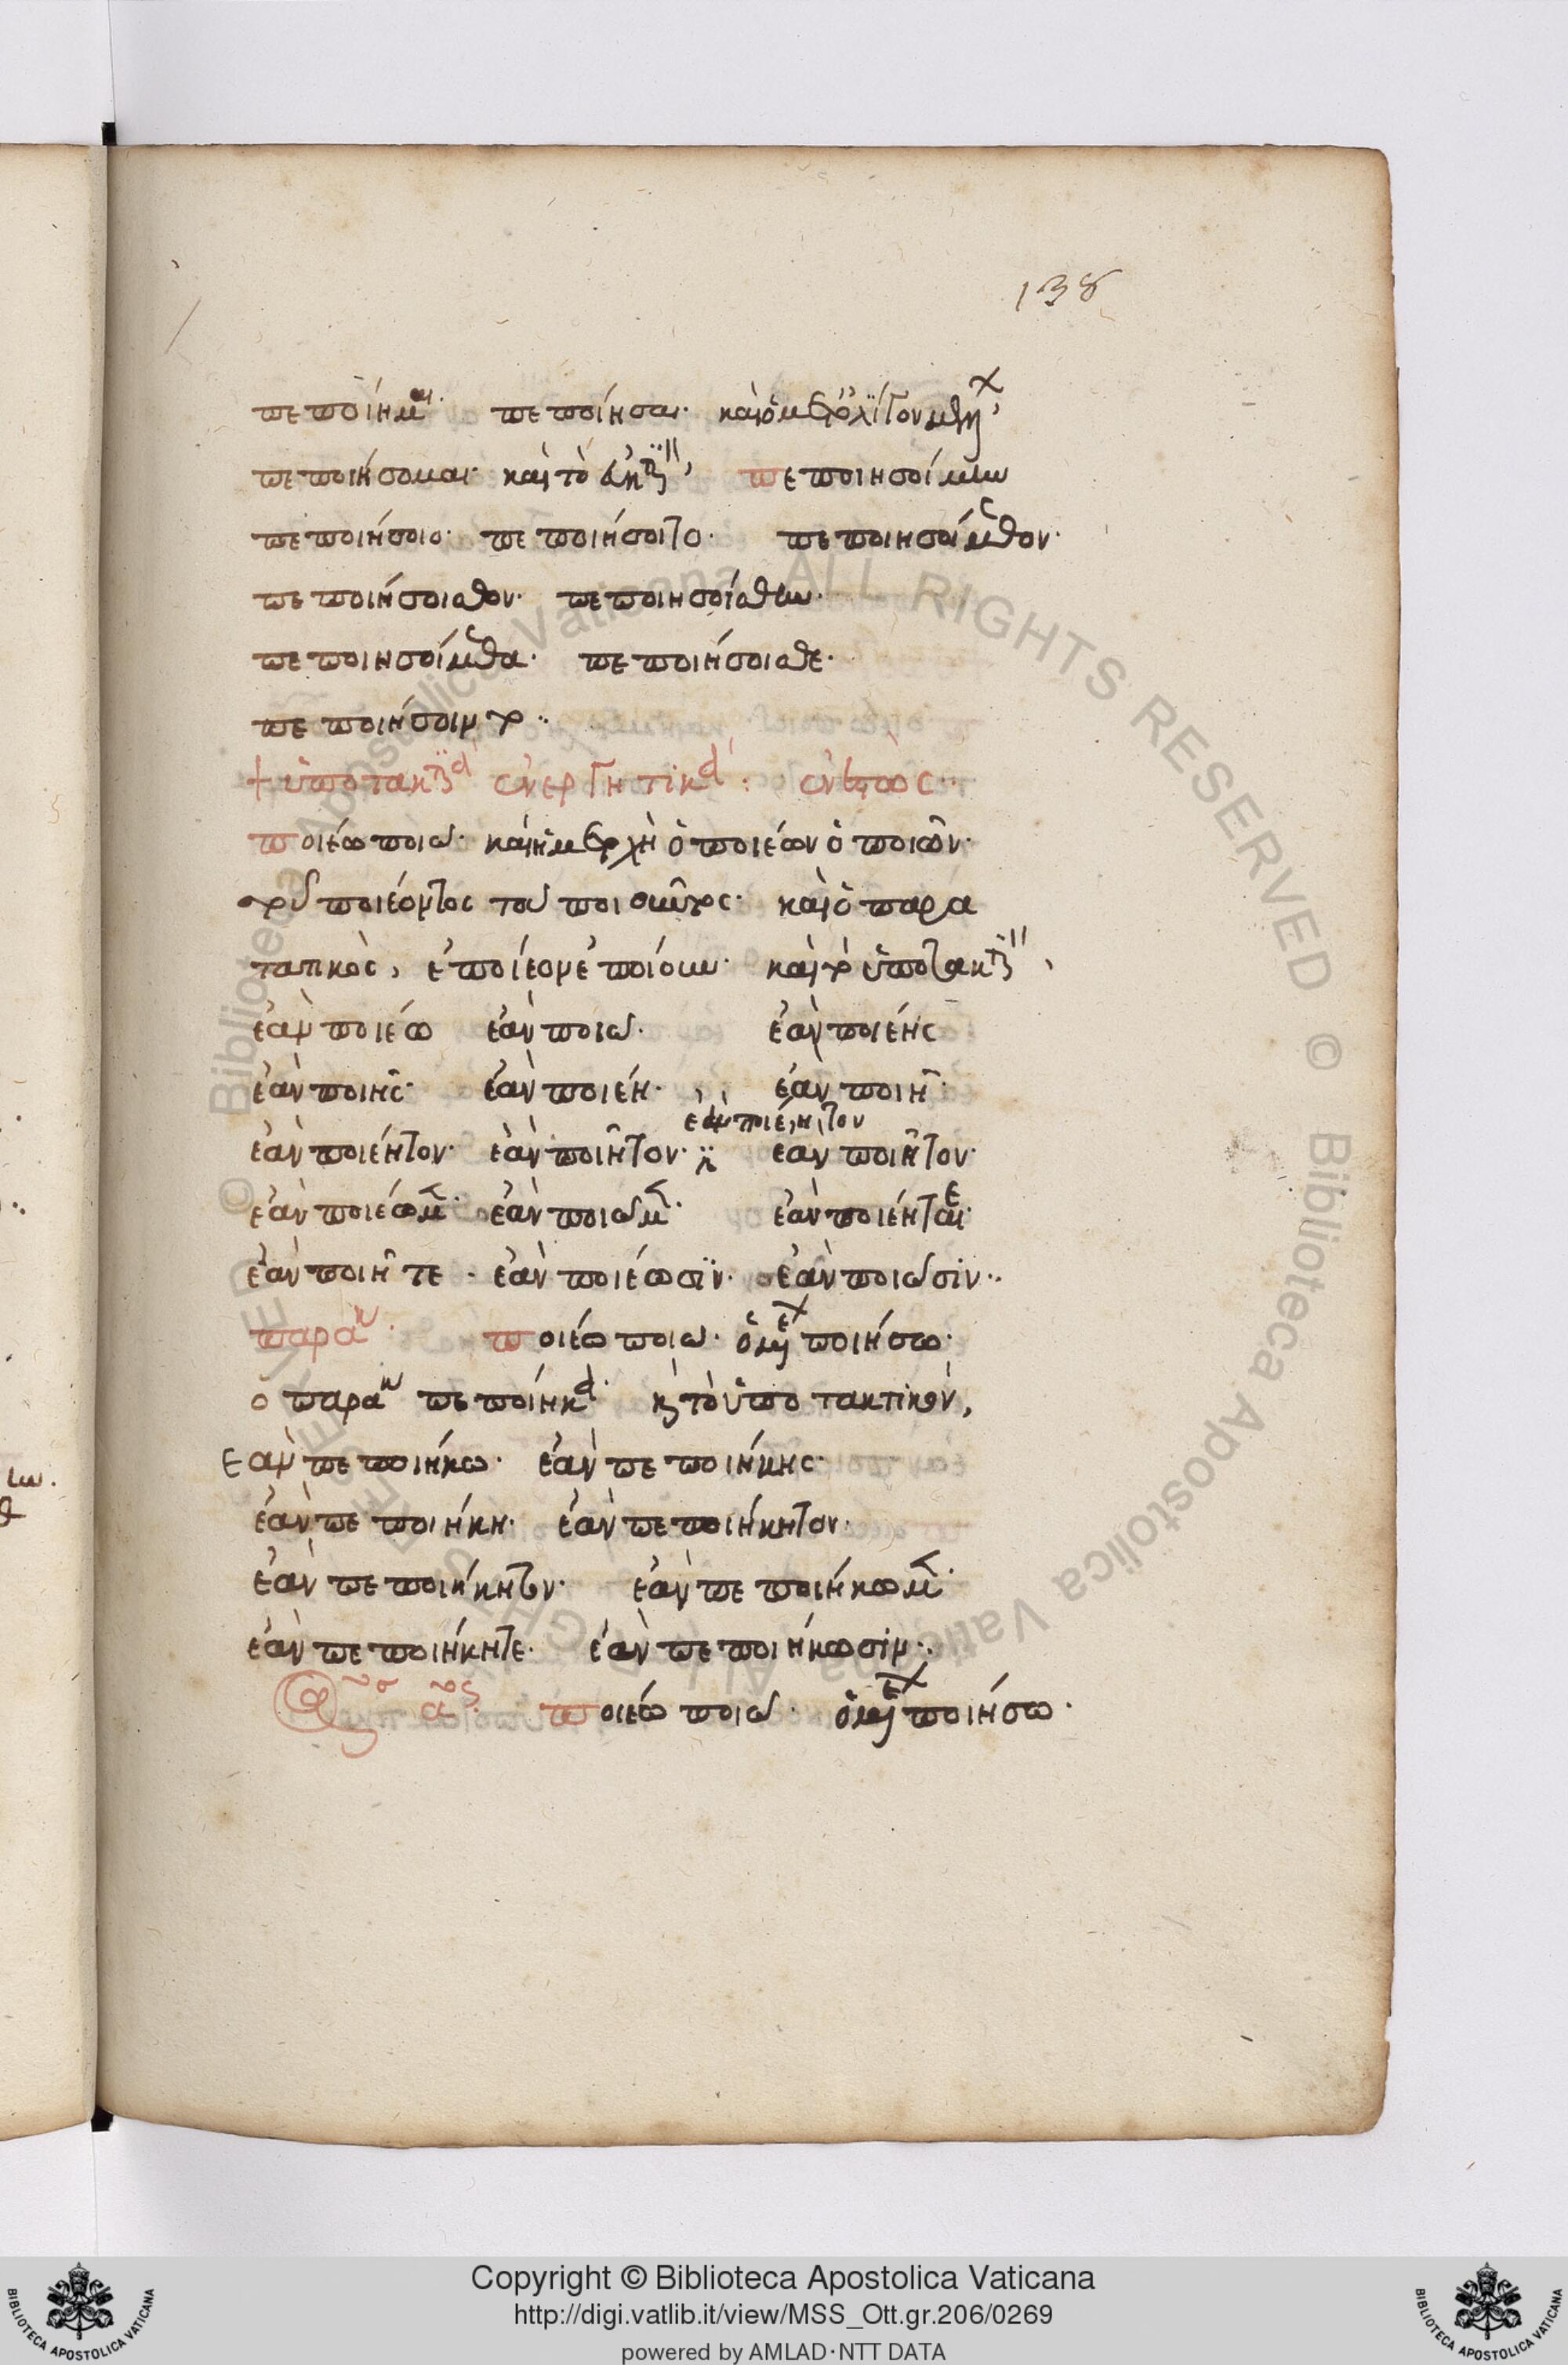 138
πεποίημαι· πεποίησαι· καὶ ὁ μετ' ὀλίγον μέλλ
πεποιήσομαι· καὶ τὸ εὐκτ πεποιησοίμην
πεποιήσοιο· πεποιήσοιτο· πεποιησοίμεθον·
πεποιήσοισθον· πεποιησοίσθην·
πεποιησοίμεθα· πεποιήσοισθε·
πεποιήσοιντο··
ὑποτακτ ἐνεργητικ : ἐνεστως··
ποιέω ποιῶ· καὶ ἡ μετοχὴ ὁ ποιέων ὁ ποιῶν·
τοῦ ποιέοντος τοῦ ποιοῦντος· καὶ ὁ παρα
τατικὸς, ἐποίεον ἐποίουν· καὶ τὸ ὑποτακτ,
ἐὰν ποιέω ἐὰν ποιῶ· ἐὰν ποιέης
ἐὰν ποιῆς· ἐὰν ποιέη· ἐὰν ποιῆ·
ἐὰν ποιέητον
ἐὰν ποιέητον· ἐὰν ποιῆτον· ἐὰν ποιῆτον·
ἐὰν ποιέωμεν· ἐὰν ποιῶμεν· ἐὰν ποιέηται
ἐὰν ποιῆτε · ἐὰν ποιέωσϊν· ἐὰν ποιῶσιν··
παρακ· ποιέω ποιῶ· ὁ μέλλ ποιήσω·
ὁ παρακ πεποίηκα· κ τὸ ὑποτακτικὸν,
ἐὰν πεποιήκω· ἐὰν πεποιήκης·
ἐὰν πεποιήκη· ἐὰν πεποιήκητον·
ἐὰν πεποιήκητον· ἐὰν πεποιήκωμεν·
ἐὰν πεποιήκητε· ἐὰν πεποιήκωσιν··
ποιέω ποιῶ· ὁ μέλλ ποιήσω·
ιω.
Copyright © Biblioteca Apostolica Vaticana
http://digi.vatlib.it/view/MSS_Ott.gr.206/0269
powered by AMLAD·NTT DATA
BIBLIOTECA APOSTOLICA VATICANA
BIBLIOTECA APOSTOLICA VATICANA
© Biblioteca Apostolica Vaticana ALL RIGHTS RESERVED
© Biblioteca Apostolica Vaticana ALL RIGHTS RESERVED